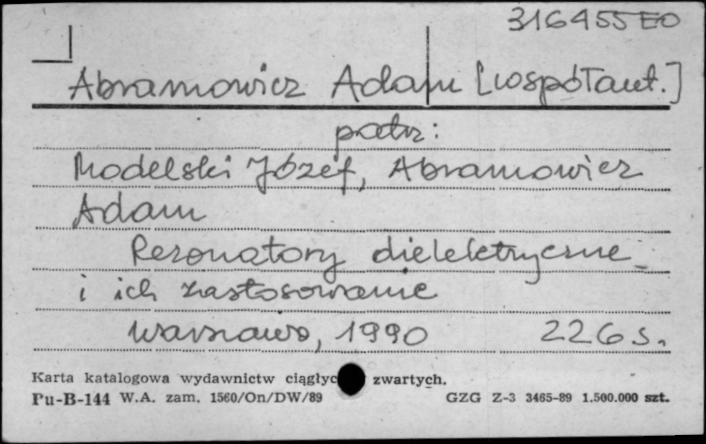 316455 EO
Abramowicz Adam [współaut.]
patrz:
Modelski Józef, Abramowicz
Adam
Rezonatory dielektryczne
i ich zastosowanie
Warszawa, 1990 226 s.
Karta katalogowa wydawnictw ciągłyc zwartych.
Pu-B-144 W.A. zam. 1560/On/DW/89 GZG Z-3 3465-89 1.500.000 szt.